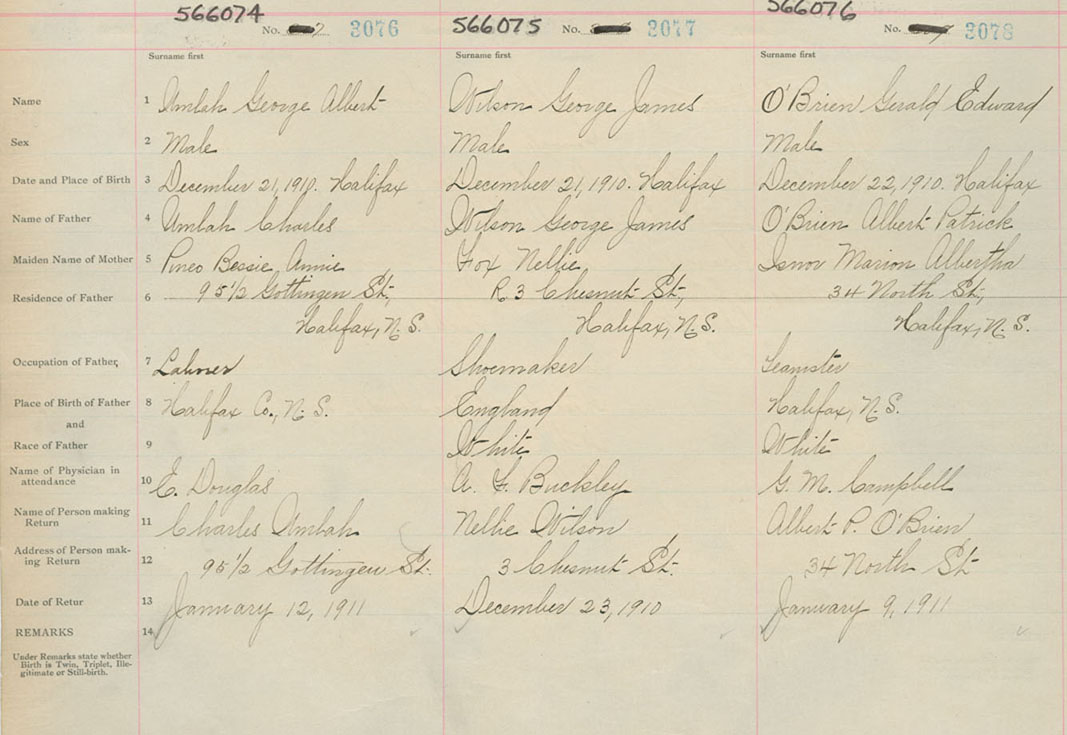 566074 566075 566076
No. 3076 No. 3077 No. 3078
Surname first Surname first Surname first
Name 1 Umlah George Albert Wilson George James O'Brien Gerald Edward
Sex 2 Male Male Male
Date and Place of Birth 3 December 21, 1910. Halifax December 21, 1910. Halifax December 22, 1910. Halifax
Name of Father 4 Umlah Charles Wilson George James O'Brien Albert Patrick
Maiden Name of Mother 5 Pineo Bessie Annie Fox Nellie Isnor Marion Albertha
Residence of Father 6 95 1/2 Gottingen St., R 3 Chesnut St., 34 North St.,
Halifax, N.S. Halifax, N.S. Halifax, N.S.
Occupation of Father, 7 Shoemaker Teamster
Place of Birth of Father 8 Halifax Co., N.S. England Halifax, N.S.
and
Race of Father 9 White White
Name of Physician in
attendance 10 E. Douglas A. F. Buckley G. M. Campbell
Name of Person making
Return 11 Charles Umlah Nellie Wilson Albert P. O'Brien
Address of Person mak-
ing Return 12 95 1/2 Gottingen St. 3 Chesnut St. 34 North St.
Date of Retur 13 January 12, 1911 December 23, 1910 January 9, 1911
REMARKS 14
Under Remarks state whether
Birth is Twin, Triplet, Ille-
gitimate or Still-birth.